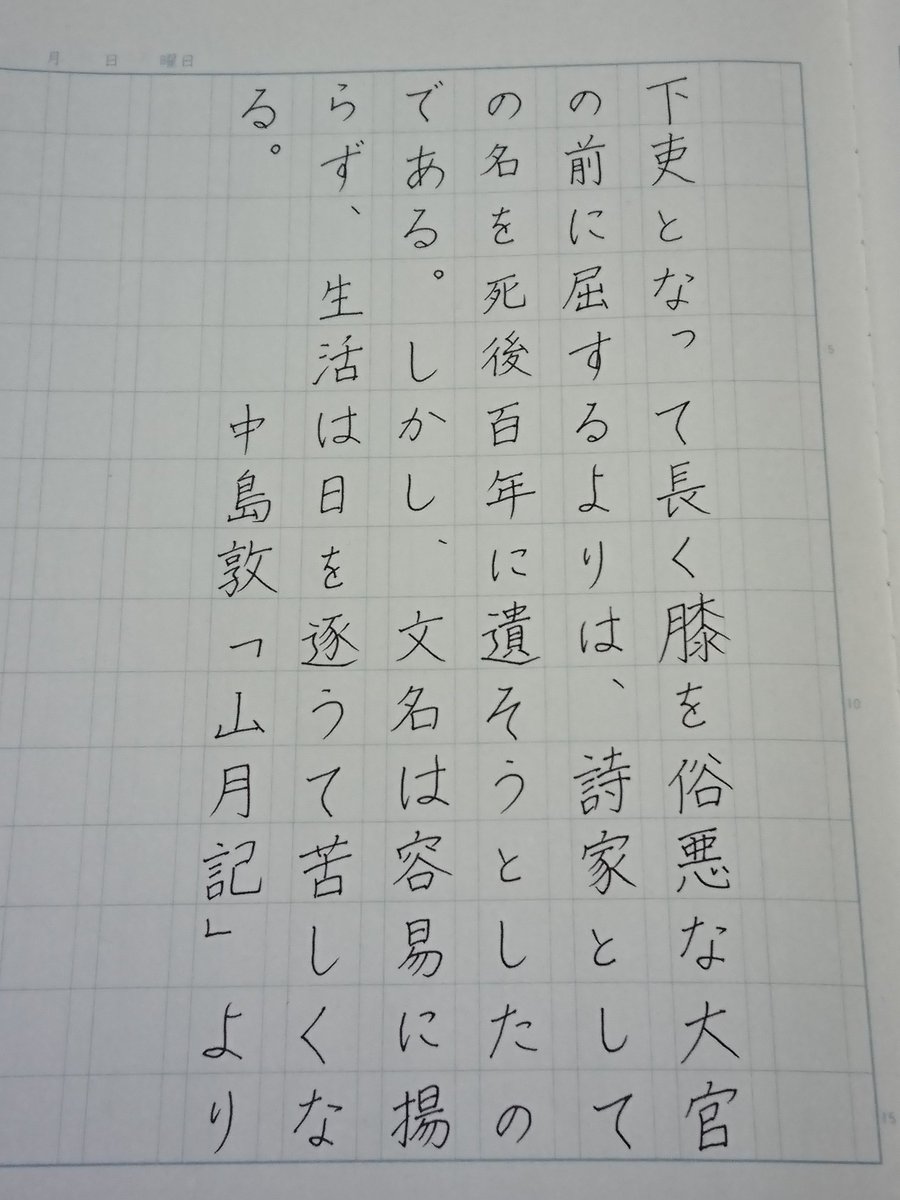 月 日 曜日
下吏となって長く膝を俗悪な大官
の前に屈するよりは、詩家として
の名を死後百年に遺そうとしたの
である。しかし、文名は容易に揚
らず、生活は日を逐うて苦しくな
る。 中島敦「山月記」より
5
10
15